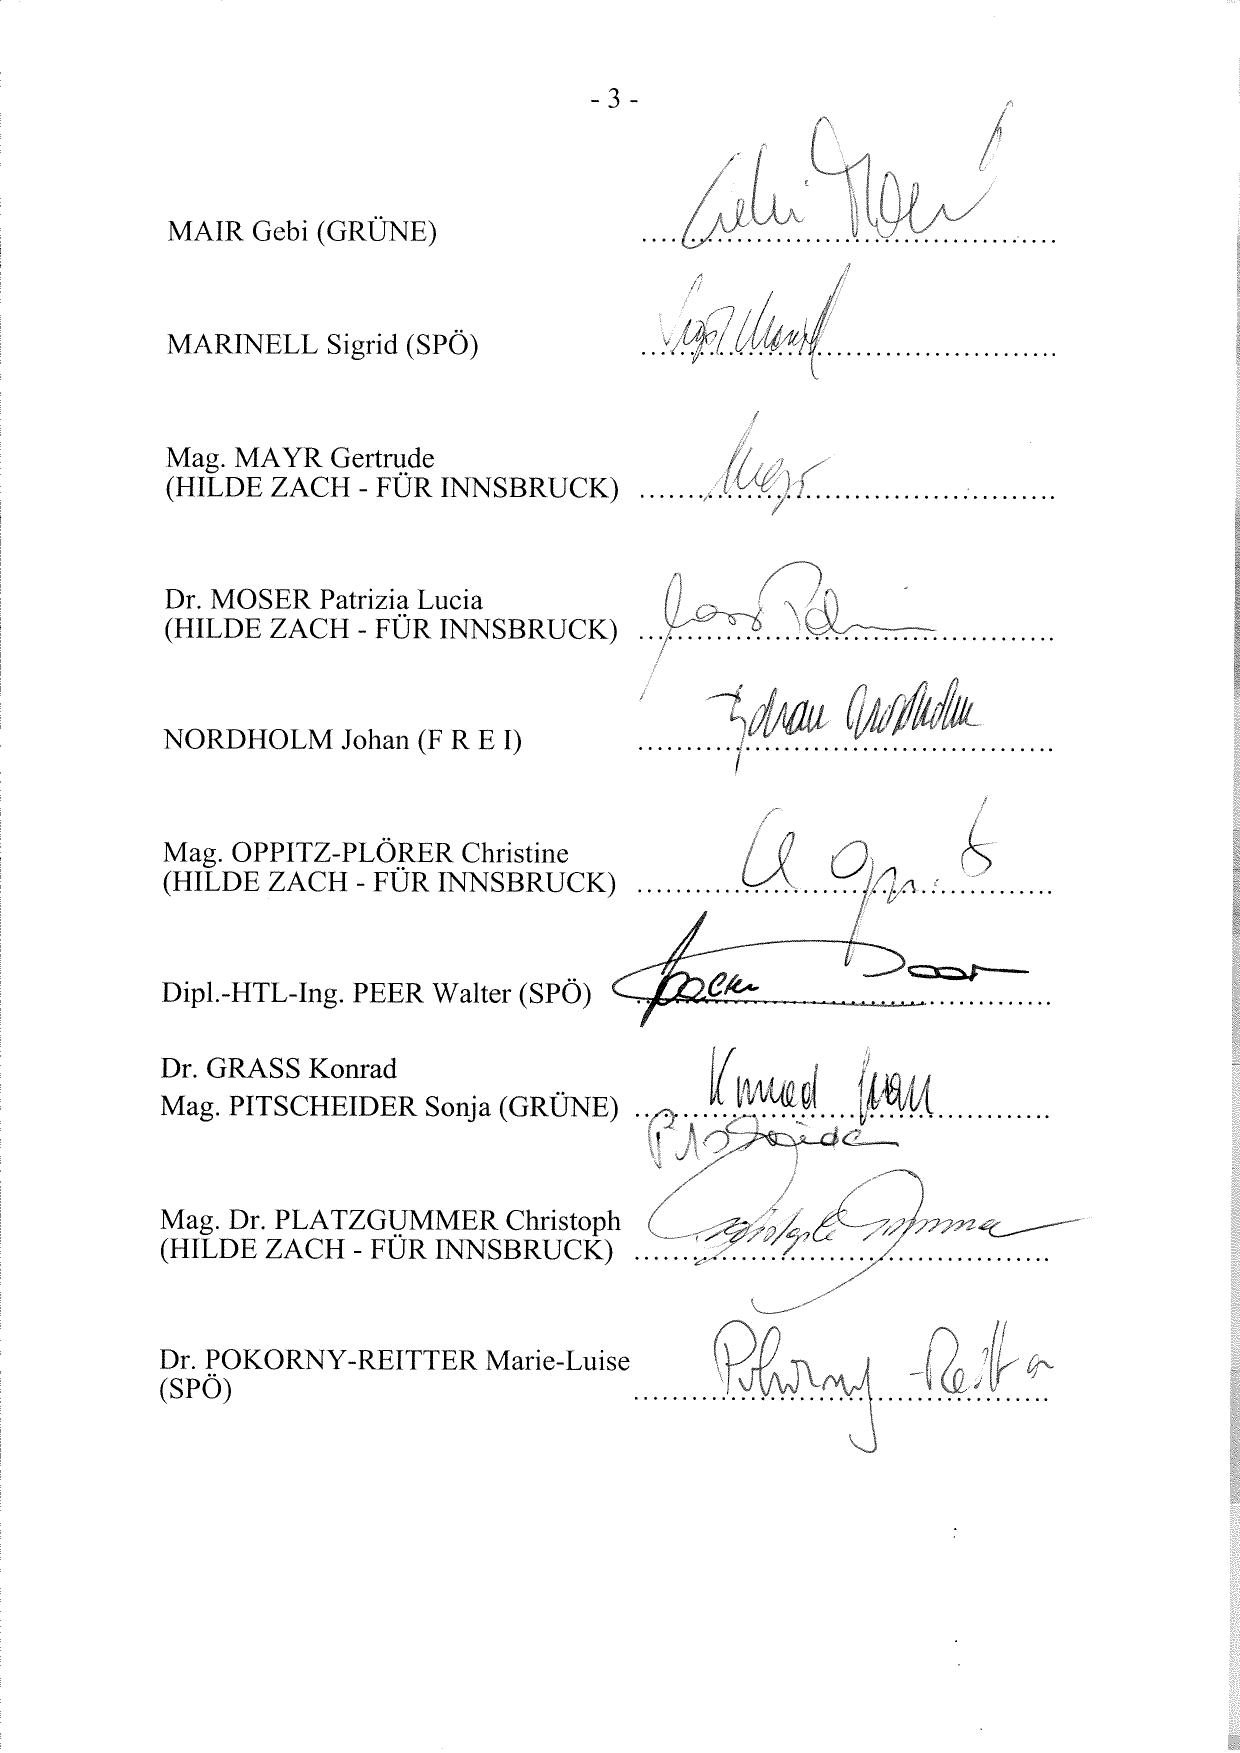 - 3 -
MAIR Gebi (GRÜNE) ........................................................ Gebi Mair
MARINELL Sigrid (SPÖ) ........................................................
Mag. MAYR Gertrude
(HILDE ZACH - FÜR INNSBRUCK) ........................................................ Mayr
Dr. MOSER Patrizia Lucia
(HILDE ZACH - FÜR INNSBRUCK) ........................................................
NORDHOLM Johan (F R E I) ........................................................ Johan Nordholm
Mag. OPPITZ-PLÖRER Christine
(HILDE ZACH - FÜR INNSBRUCK) ........................................................
Dipl.-HTL-Ing. PEER Walter (SPÖ) ........................................................
Dr. GRASS Konrad Konrad Grass
Mag. PITSCHEIDER Sonja (GRÜNE) ........................................................
Mag. Dr. PLATZGUMMER Christoph
(HILDE ZACH - FÜR INNSBRUCK) ........................................................
Dr. POKORNY-REITTER Marie-Luise Pokorny-Reitter
(SPÖ) ........................................................